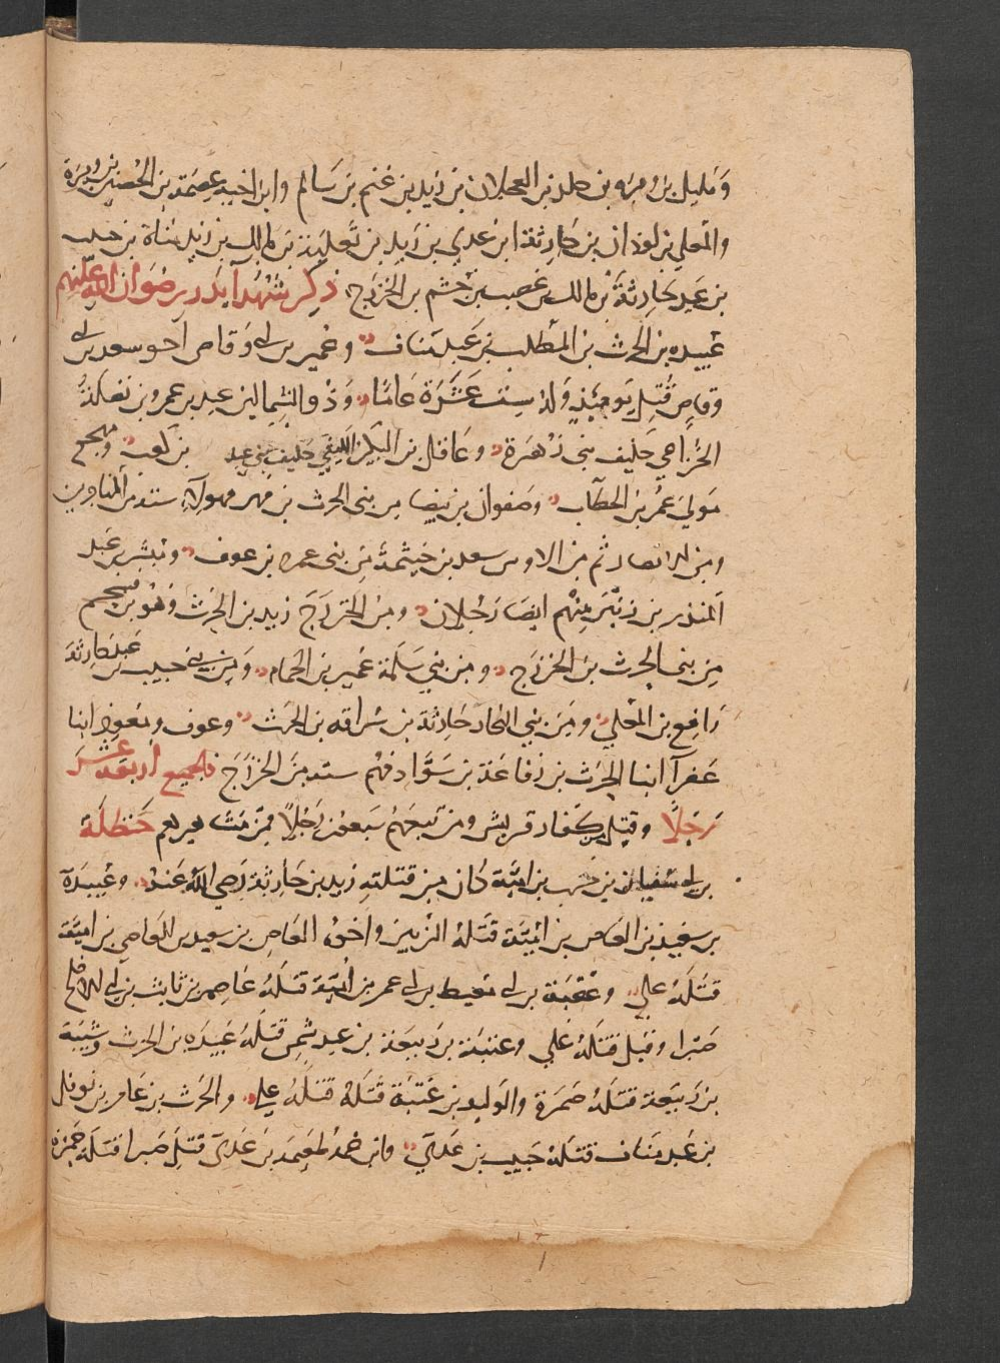 ومليل بن وبره بن خلد بن العجلان بن زيد بن غنم بن سالم وابن اخيه عصمة بن الحصين بن وبرة
والمعلى بن لوذان بن حارثة ابن عدي بن زيد بن ثعلبة بن مالك بن زيد مناة بن حبيب
بن عبد حارثة بن مالك بن غضب بن جشم بن الخزرج ذكر شهدآ بدر رضوان الله عليهم
عبيده بن الحرث بن المطلب بن عبد مناف وعمير بن ابي وقاص اخو سعد بن ابي
وقاص قتل يومئذ وله ست عشرة عامًا وذو الشمالين عبد بن عمرو بن نضلة
الخزاعي حليف بني زهرة وعاقل بن البكير الليثي حليف بني عدي بن كعب ومهجع
مولى عمر بن الخطاب وصفوان بن بيضا من بني الحرث بن فهر فهولاء ستة من المهاجرين
ومن الانصار ثم من الاوس سعد بن خيثمة من بني عمرو بن عوف ومبشر بن عبد
المنذر بن زنبر منهم ايضا رجلان ومن الخزرج زيد بن الحرث وهو بن فسحم
من بني الحرث بن الخزرج ومن بني سلمة عمير بن الحمام ومن بني حبيب بن عبد حارثة
رافع بن المعلى ومن بني النجار حارثة بن سراقه بن الحرث وعوف ومعوذ ابنا
عفرآ ابنا الحرث بن رفاعة بن سواد فهم ستة من الخزرج فالجميع اربعة عشر
رجلًا وقتل من كفار قريش ومن تبعهم سبعون رجلًا فمن مشاهيرهم حنظلة
بن ابي سفيان بن حرب بن امية كان من قتلته زيد بن حارثة رضي الله عنه وعبيدة
بن سعيد بن العاص بن امية قتله الزبير واخوه العاص بن سعيد بن العاص بن امية
قتله علي وعقبة بن ابي معيط بن ابي عمر بن امية قتله عاصم بن ثابت بن ابي الافلح
صبرا وقيل قتله علي وعتبة بن ربيعة بن عبد شمس قتله عبيده بن الحرث وشيبة
بن ربيعة قتله حمزة والوليد بن عتبة قتله قتله علي والحرث بن عامر بن نوفل
بن عبد مناف قتله خبيب بن عدي وابن عمه طعيمة بن عدي قتل صبرا قتله حمزة